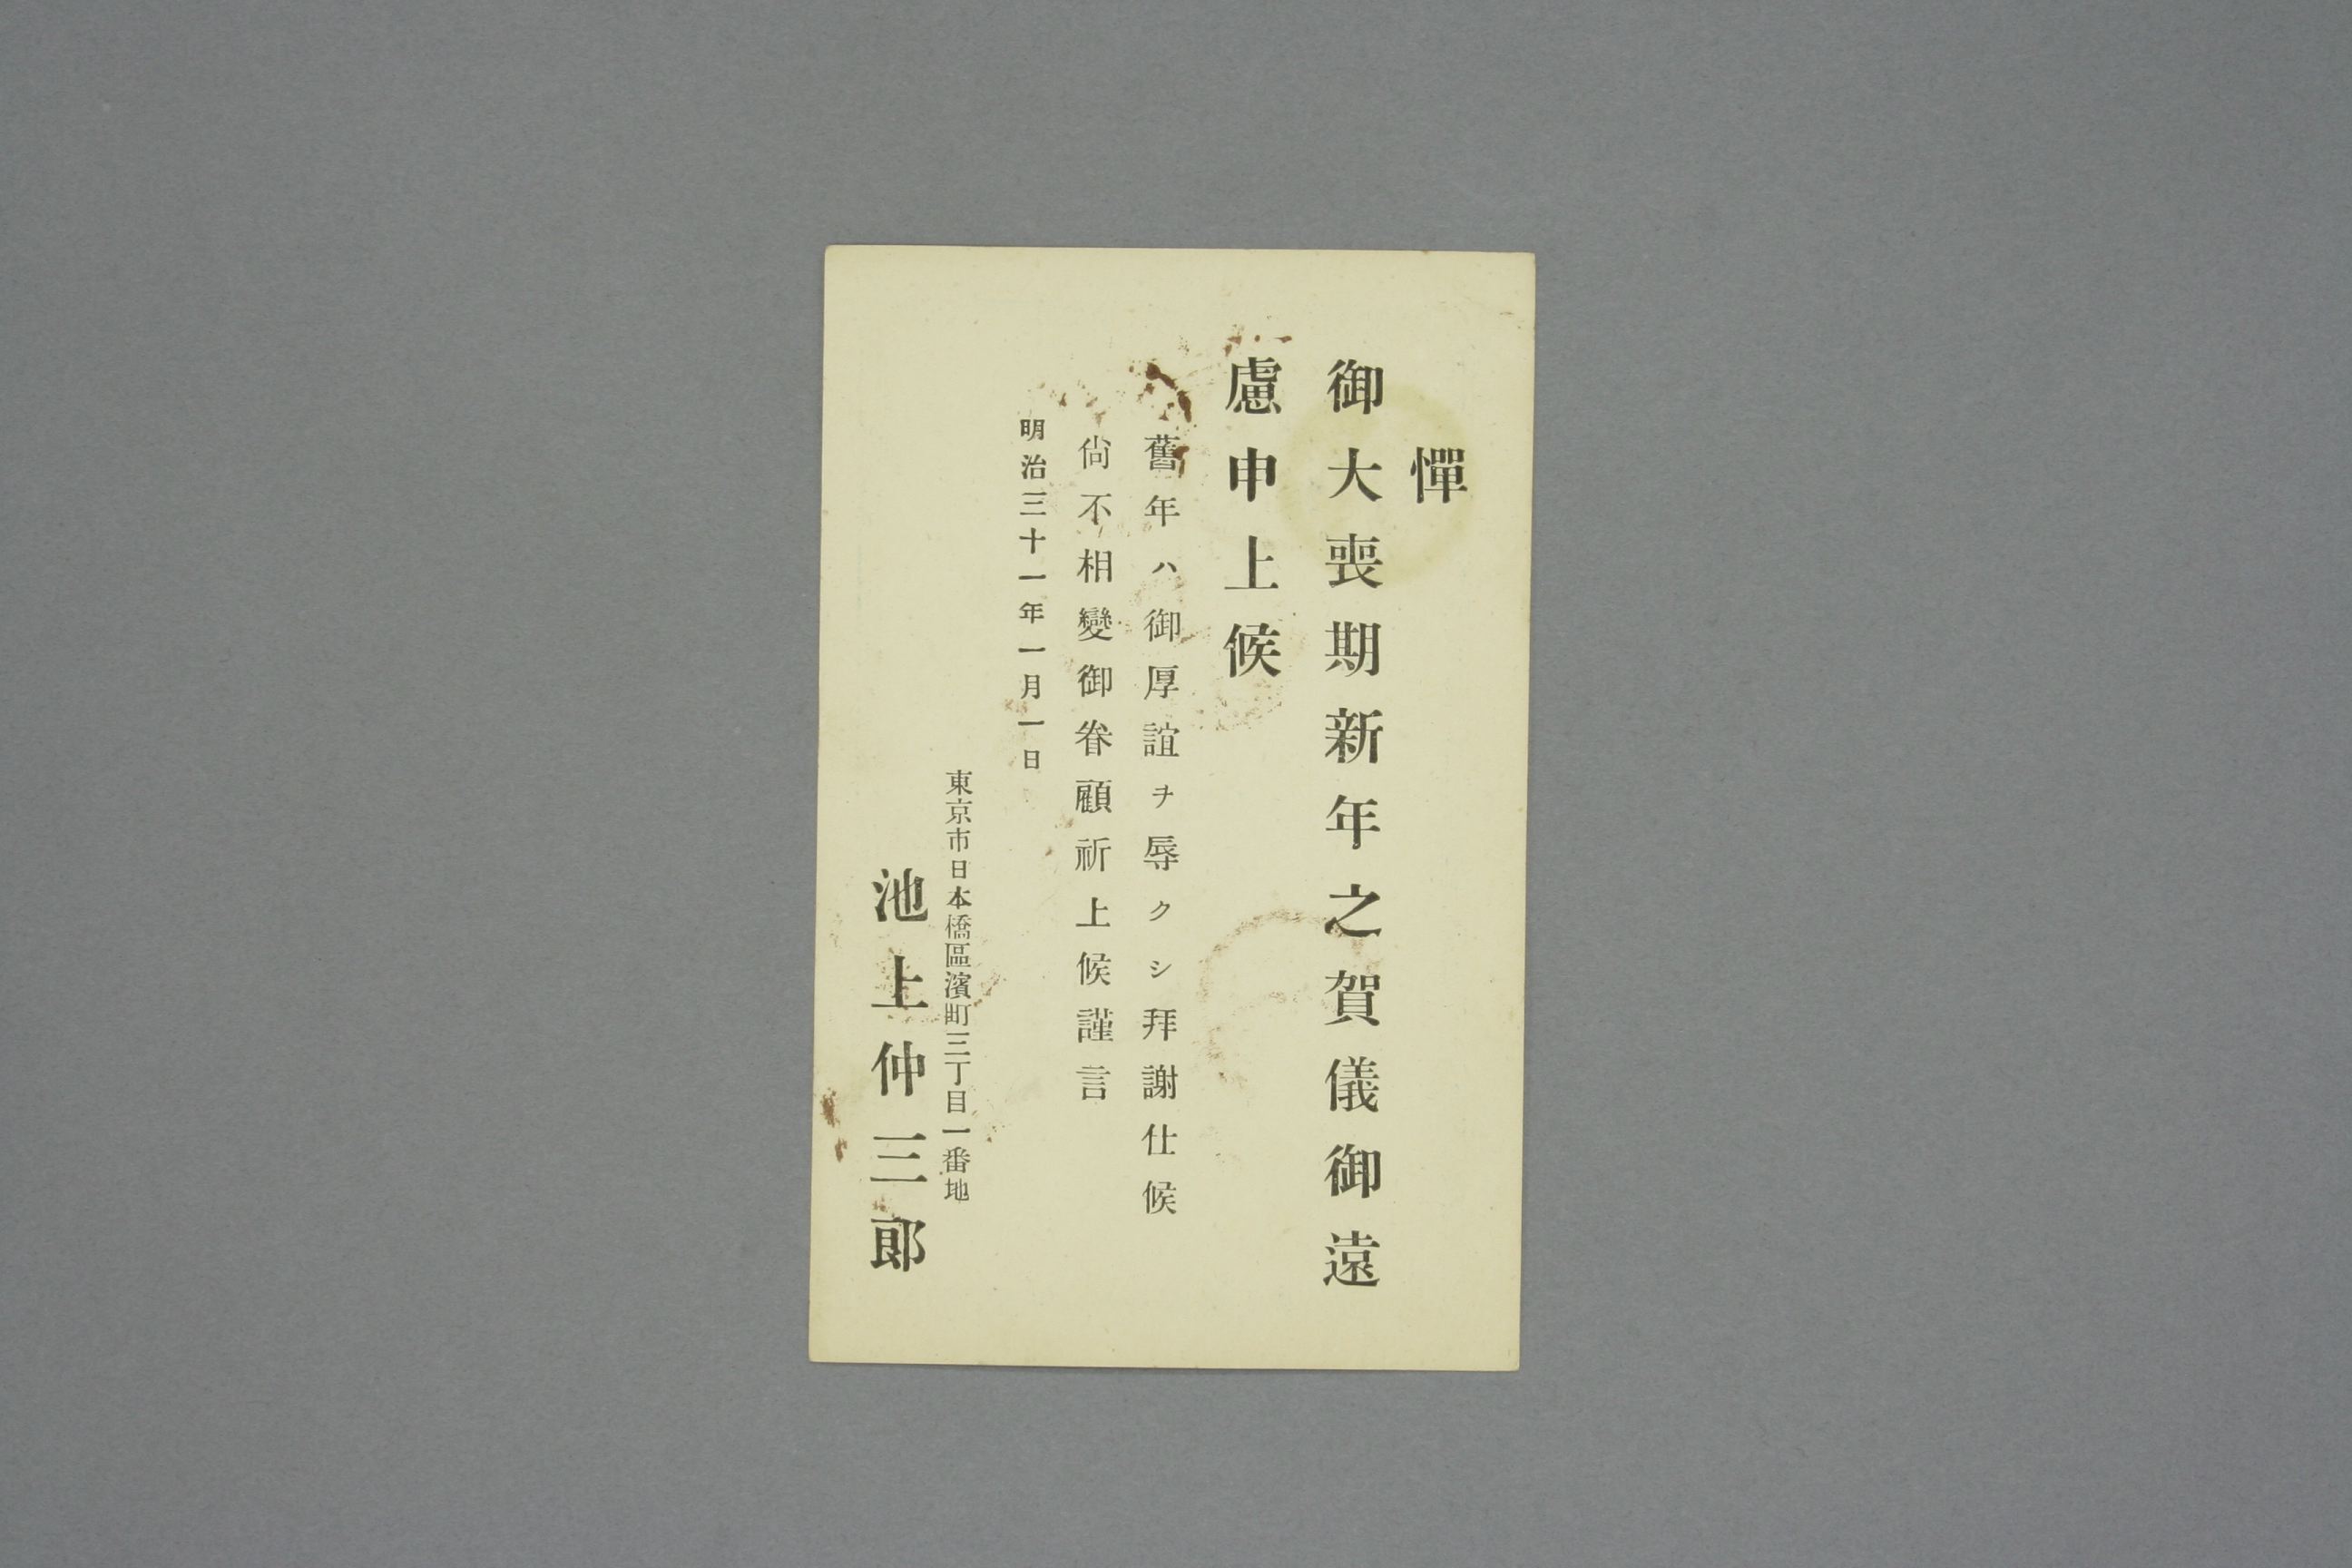 憚
御大喪期新年之賀儀御遠
慮申上候
舊年ハ御厚誼ヲ辱クシ拜謝仕候
尙不相變御眷顧祈上候謹言
明治三十一年一月一日
東京市日本橋區濱町三丁目一番地
池上仲三郞